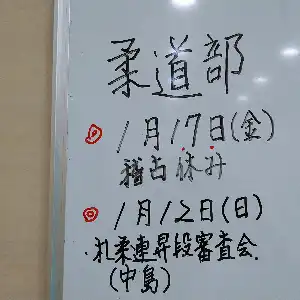 柔道部
◎1月17日(金)
稽古休み
◎1月12日(日)
・札柔連昇段審査会
(中島)